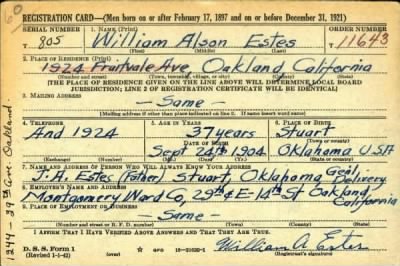 60
REGISTRATION CARD—(Men born on or after February 17, 1897 and on or before December 31, 1921)
SERIAL NUMBER 1. NAME (Print) ORDER NUMBER
T 805 William Alson Estes T 11643
2. PLACE OF RESIDENCE (Print)
1924 Fruitvale Ave, Oakland California
(Number and street) (Town, township, village, or city) (County) (State)
[THE PLACE OF RESIDENCE GIVEN ON THE LINE ABOVE WILL DETERMINE LOCAL BOARD
JURISDICTION; LINE 2 OF REGISTRATION CERTIFICATE WILL BE IDENTICAL]
3. MAILING ADDRESS
- Same -
[Mailing address if other than place indicated on line 2. If same insert word same]
4. TELEPHONE 5. AGE IN YEARS 6. PLACE OF BIRTH
And 1924 37 years Stuart
DATE OF BIRTH (Town or county)
Sept 24th 1904 Oklahoma USA
(Exchange) (Number) (Mo.) (Day) (Yr.) (State or country)
7. NAME AND ADDRESS OF PERSON WHO WILL ALWAYS KNOW YOUR ADDRESS
J.A. Estes (Father) Stuart, Oklahoma Genl Delivery
8. EMPLOYER'S NAME AND ADDRESS
Montgomery Ward Co, 29th & E-14th St Oakland, California
9. PLACE OF EMPLOYMENT OR BUSINESS
- Same -
(Number and street or R. F. D. number) (Town) (County) (State)
I AFFIRM THAT I HAVE VERIFIED ABOVE ANSWERS AND THAT THEY ARE TRUE.
D. S. S. Form 1
(Revised 1-1-42) (over) William A. Estes
1244 - 39th Ave Oakland.